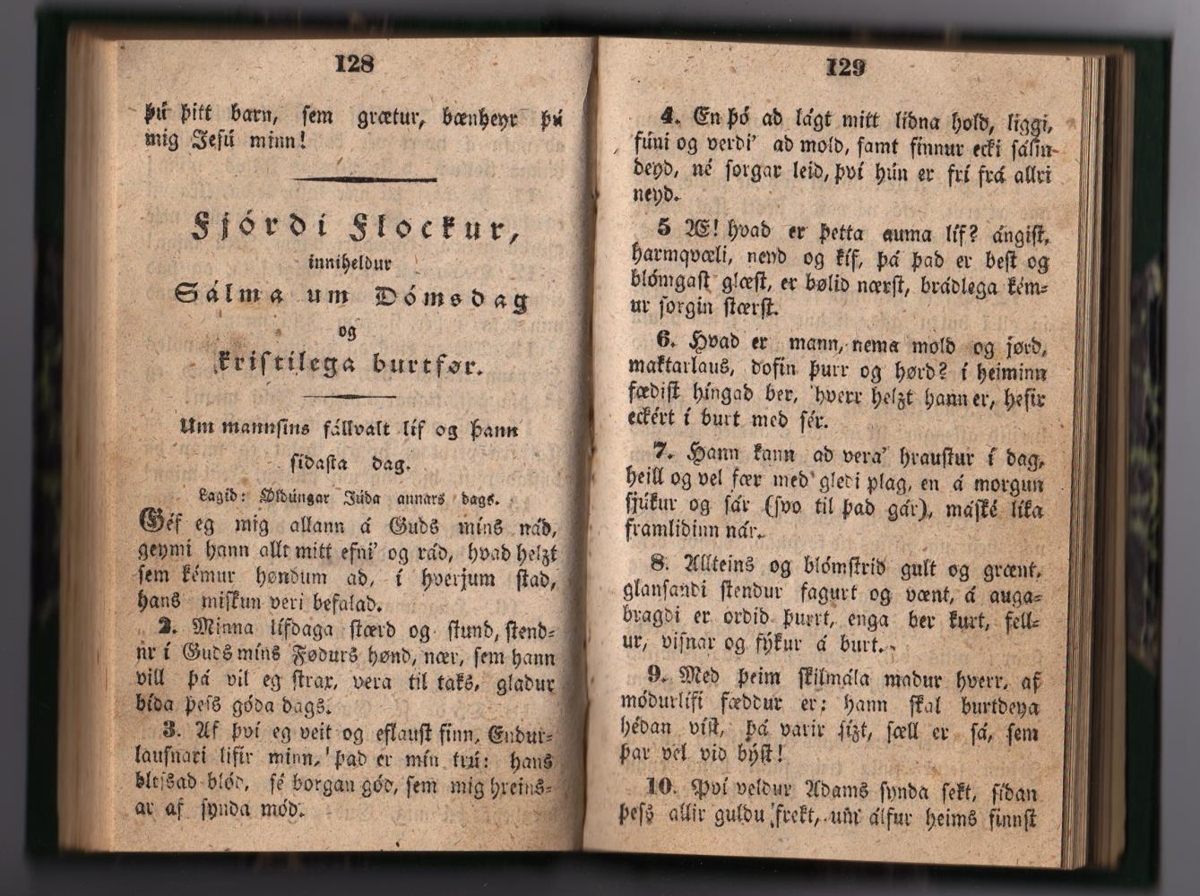 128
þú þitt barn, sem grætur, bænheyr þú
mig Jesú minn!
Fjórdi Flockur,
inniheldur
Sálma um Dómsdag
og
kristilega burtfør.
Um mannsins fallvalt líf og þann
sídasta dag.
Lagid: Øldúngar Júda annars dags.
Géf eg mig allann á Guds míns nád,
geymi hann allt mitt efni' og rád, hvad helzt
sem kémur høndum ad, í hverjum stad,
hans miskun veri befalad.
2. Minna lífdaga stærd og stund, stend-
ur í Guds míns Fødurs hønd, nær, sem hann
vill þá vil eg strax, vera til taks, gladur
bída þess góda dags.
3. Af því eg veit og eflaust finn, Endur-
lausnari lifir minn, þad er mín trú: hans
blessad blód, sé borgan gód, sem mig hreins-
ar af synda mód.
129
4. En þó ad lágt mitt lidna hold, liggi,
fúni og verdi' ad mold, samt finnur ecki sálin
deyd, né sorgar leid, því hún er frí frá allri
neyd.
5 Æ! hvad er þetta auma líf? ángist,
harmqvæli, neyd og kíf, þá þad er best og
blómgast glæst, er bølid nærst, brádlega kém-
ur sorgin stærst.
6. Hvad er mann, nema mold og jørd,
maktarlaus, dofin þurr og hørd? í heiminn
fædist híngad ber, hverr helzt hann er, hefir
eckért í burt med sér.
7. Hann kann ad vera' hraustur í dag,
heill og vel fær med gledi plag, en á morgun
sjúkur og sár (svo til þad gár), máské líka
framlidinn nár.
8. Allteins og blómstrid gult og grænt,
glansandi stendur fagurt og vænt, á auga-
bragdi er ordid þurrt, enga ber kurt, fell-
ur, visnar og fýkur á burt.
9. Med þeim skilmála madur hverr, af
módurlífi fæddur er; hann skal burtdeya
hédan víst, þá varir sízt, sæll er sá, sem
þar vel vid býst!
10. Því veldur Adams synda sekt, sídan
þess allir guldu frekt, um álfur heims finnst